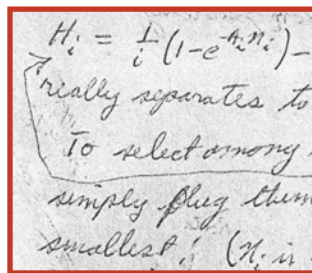 H_i = 1/i (1-e^{-A_i n_i}) -
really separates to
To select among
simply plug them
smallest! (n_i is